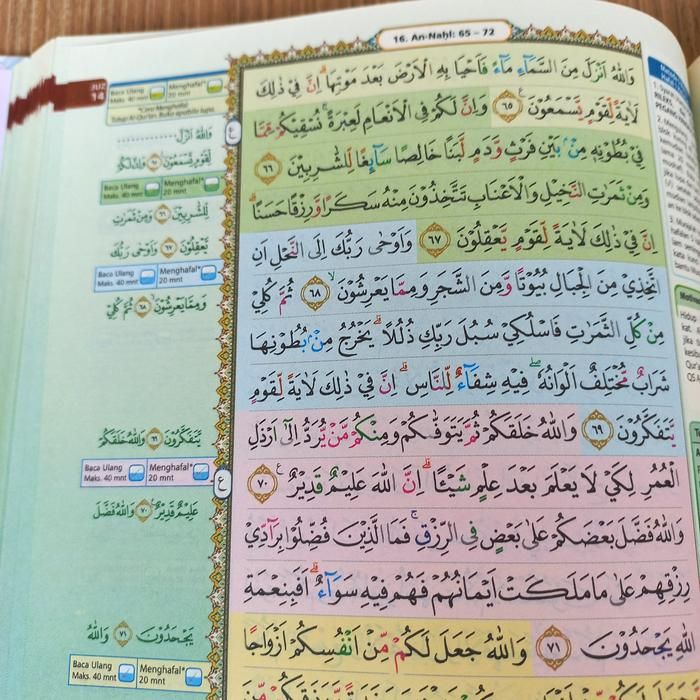 16. An-Naḥl: 65 – 72
وَاللّٰهُ اَنْزَلَ مِنَ السَّمَاۤءِ مَاۤءً فَاَحْيَا بِهِ الْاَرْضَ بَعْدَ مَوْتِهَاۗ اِنَّ فِيْ ذٰلِكَ
لَاٰيَةً لِّقَوْمٍ يَّسْمَعُوْنَ ࣖ ٦٥ وَاِنَّ لَكُمْ فِى الْاَنْعَامِ لَعِبْرَةًۚ نُسْقِيْكُمْ مِّمَّا
فِيْ بُطُوْنِهٖ مِنْۢ بَيْنِ فَرْثٍ وَّدَمٍ لَّبَنًا خَالِصًا سَاۤىِٕغًا لِّلشّٰرِبِيْنَ ٦٦
وَمِنْ ثَمَرٰتِ النَّخِيْلِ وَالْاَعْنَابِ تَتَّخِذُوْنَ مِنْهُ سَكَرًا وَّرِزْقًا حَسَنًاۗ
اِنَّ فِيْ ذٰلِكَ لَاٰيَةً لِّقَوْمٍ يَّعْقِلُوْنَ ٦٧ وَاَوْحٰى رَبُّكَ اِلَى النَّحْلِ اَنِ
اتَّخِذِيْ مِنَ الْجِبَالِ بُيُوْتًا وَّمِنَ الشَّجَرِ وَمِمَّا يَعْرِشُوْنَۙ ٦٨ ثُمَّ كُلِيْ
مِنْ كُلِّ الثَّمَرٰتِ فَاسْلُكِيْ سُبُلَ رَبِّكِ ذُلُلًاۗ يَخْرُجُ مِنْۢ بُطُوْنِهَا
شَرَابٌ مُّخْتَلِفٌ اَلْوَانُهٗۖ فِيْهِ شِفَاۤءٌ لِّلنَّاسِۗ اِنَّ فِيْ ذٰلِكَ لَاٰيَةً لِّقَوْمٍ
يَّتَفَكَّرُوْنَ ٦٩ وَاللّٰهُ خَلَقَكُمْ ثُمَّ يَتَوَفّٰىكُمْ وَمِنْكُمْ مَّنْ يُّرَدُّ اِلٰٓى اَرْذَلِ
الْعُمُرِ لِكَيْ لَا يَعْلَمَ بَعْدَ عِلْمٍ شَيْـًٔاۗ اِنَّ اللّٰهَ عَلِيْمٌ قَدِيْرٌ ࣖ ٧٠
وَاللّٰهُ فَضَّلَ بَعْضَكُمْ عَلٰى بَعْضٍ فِى الرِّزْقِۚ فَمَا الَّذِيْنَ فُضِّلُوْا بِرَاۤدِّيْ
رِزْقِهِمْ عَلٰى مَا مَلَكَتْ اَيْمَانُهُمْ فَهُمْ فِيْهِ سَوَاۤءٌۗ اَفَبِنِعْمَةِ
اللّٰهِ يَجْحَدُوْنَ ٧١ وَاللّٰهُ جَعَلَ لَكُمْ مِّنْ اَنْفُسِكُمْ اَزْوَاجًا
JUZ
14
Baca Ulang
Maks. 40 mnt
Menghafal*
20 mnt
*Cara Menghafal:
Tutup Al-Qur'an. Buka apabila lupa.
وَاللّٰهُ اَنْزَلَ
لِّقَوْمٍ يَّسْمَعُوْنَ ٦٥ وَاِنَّ لَكُمْ
Baca Ulang
Maks. 40 mnt
Menghafal*
20 mnt
لِّلشّٰرِبِيْنَ ٦٦ وَمِنْ ثَمَرٰتِ
يَّعْقِلُوْنَ ٦٧ وَاَوْحٰى رَبُّكَ
Baca Ulang
Maks. 40 mnt
Menghafal*
20 mnt
وَمِمَّا يَعْرِشُوْنَ ٦٨ ثُمَّ كُلِيْ
يَّتَفَكَّرُوْنَ ٦٩ وَاللّٰهُ خَلَقَكُمْ
Baca Ulang
Maks. 40 mnt
Menghafal*
20 mnt
عَلِيْمٌ قَدِيْرٌ ٧٠ وَاللّٰهُ فَضَّلَ
يَجْحَدُوْنَ ٧١ وَاللّٰهُ
Baca Ulang
Maks. 40 mnt
Menghafal*
20 mnt
ع
ع